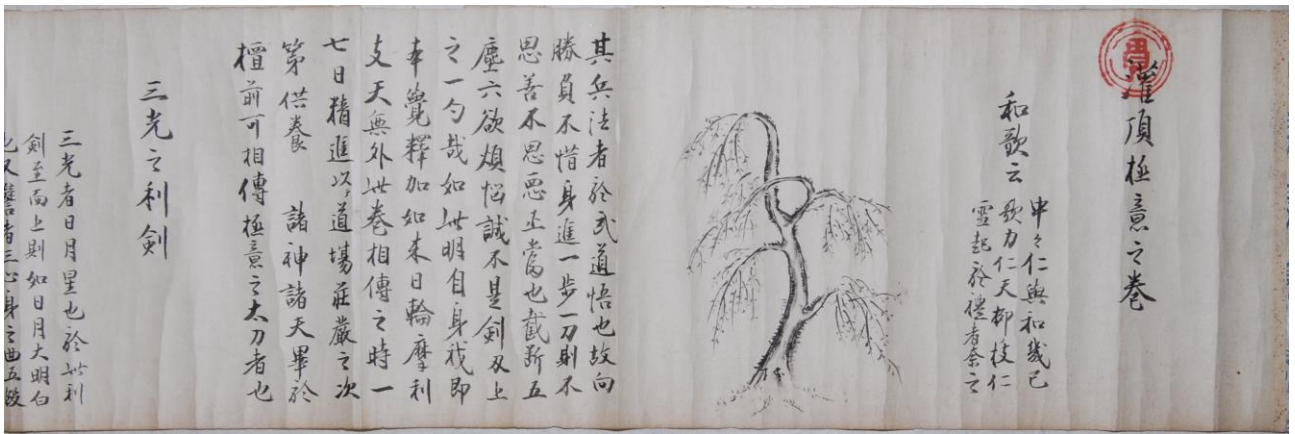 灌頂極意之巻
和歌云
申々仁與和幾己
歌力仁天柳枝仁
雪起於禮者奈之
其兵法者於武道悟也故向
勝負不惜身進一歩一刀則不
思善不思悪正當也截断五
塵六欲煩悩誠不是剣刄上
之一勺哉如此明自身我即
本覺釋加如来日輪摩利
支天無外此巻相傳之時一
七日精進以道場荘嚴之次
第供養 諸神諸天畢於
檀前可相傳極意之太刀者也
三光之利剣
三光者日月星也於此利
剣至而上則如日月大明白
也又 者三心身之曲五